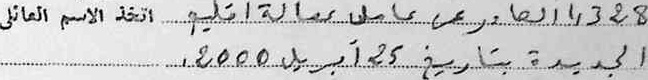 1328 الصادر عن عامل عمالة اقليم اتخذ الاسم العائلي
الجديدة بتاريخ 25 أبريل 2000.